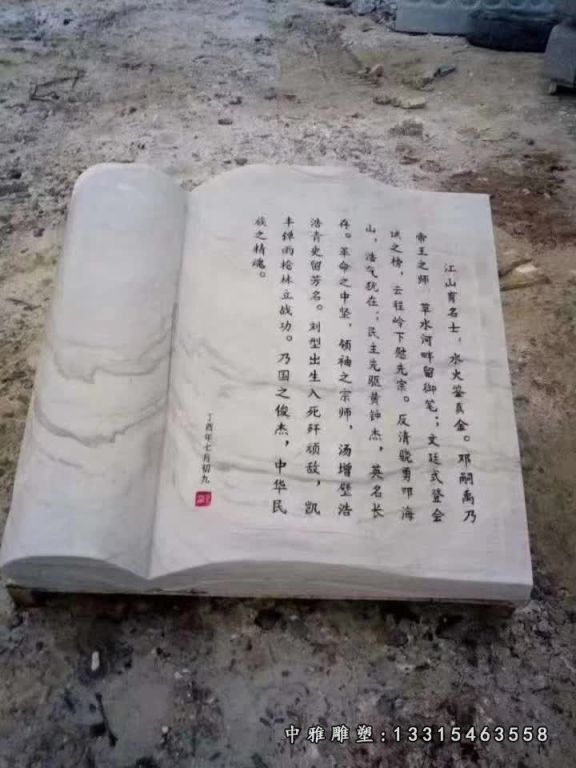 江山育名士，水火鉴真金。邓嗣禹乃
帝王之师，草水河畔留御笔；文廷式登会
试之榜，云程岭下慰先宗。反清骁勇海
山，浩气犹在；民主先驱黄钟杰，英名长
存。革命之中坚，领袖之宗师，汤增璧浩
浩青史留芳名。刘型出生入死歼顽敌，凯
丰弹雨枪林立战功。乃国之俊杰，中华民
族之精魂。
丁酉年七月初九
中雅雕塑:13315463558